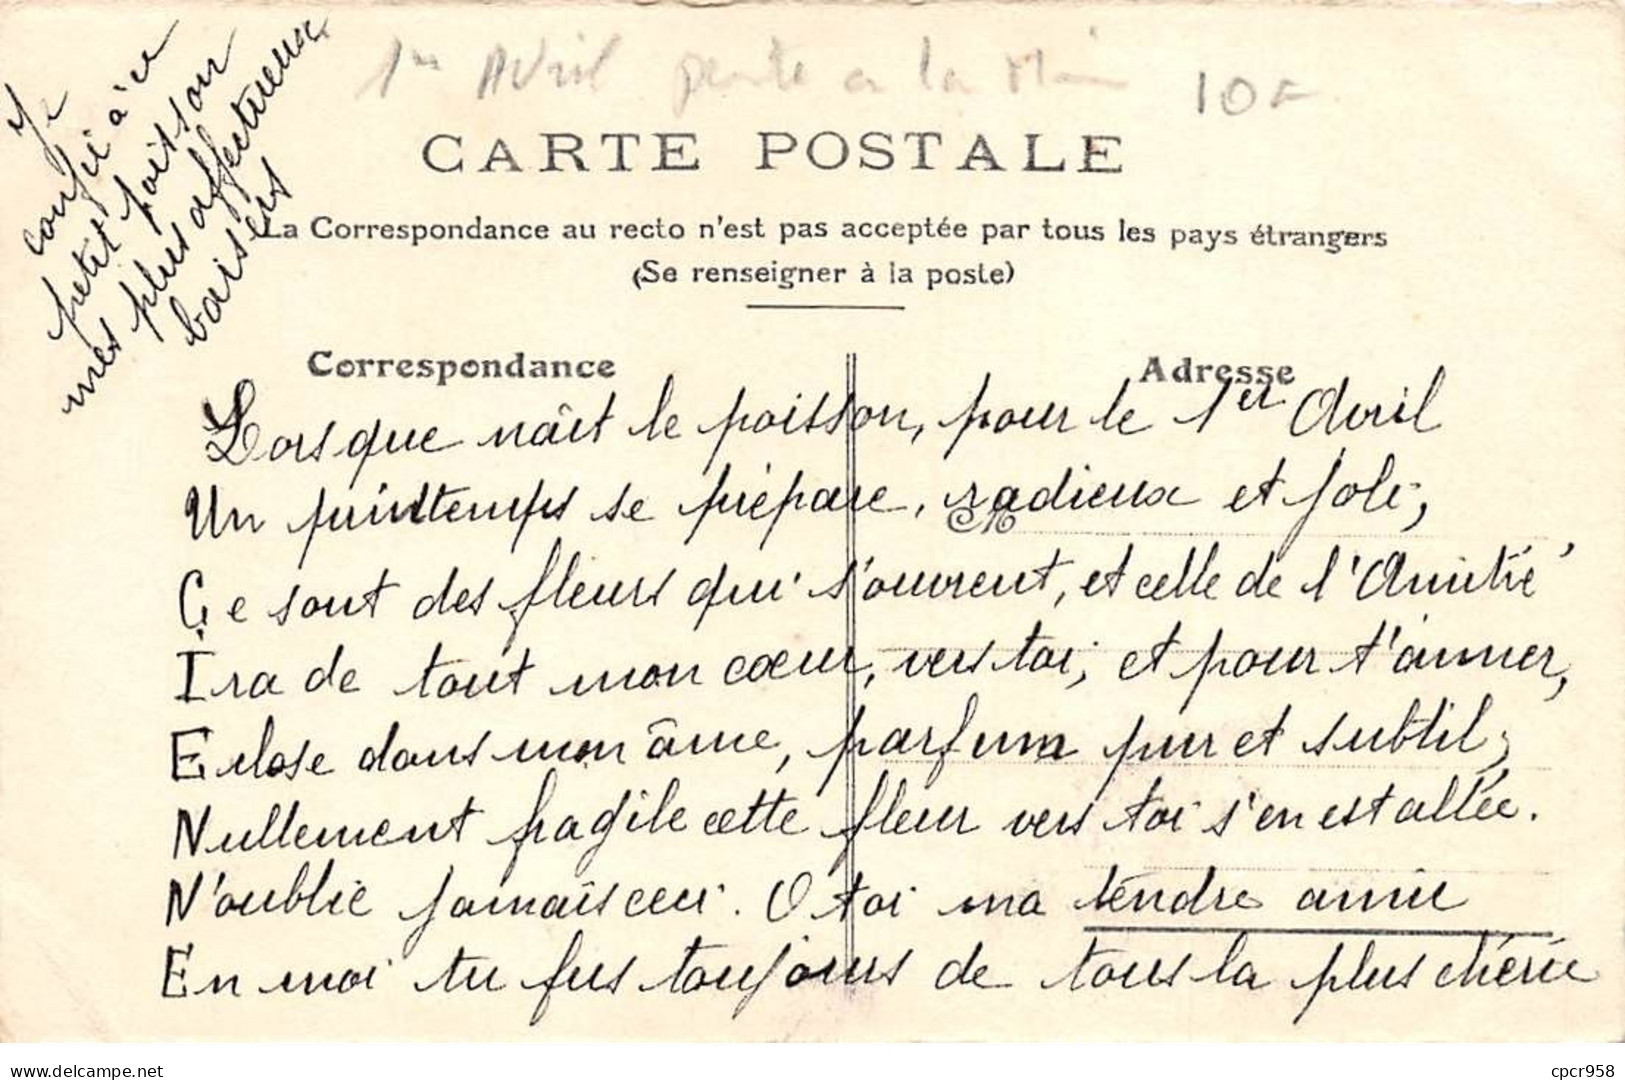 1er Avril peinte a la Main 10F
Je
confie à ce
petit poisson
mes plus affectueux
baisers
CARTE POSTALE
La Correspondance au recto n'est pas acceptée par tous les pays étrangers
(Se renseigner à la poste)
Correspondance
Adresse
Lorsque nâit le poisson, pour le 1er Avril
Un printemps se prépare, radieux et joli,
Ce sont des fleurs qui s'ouvrent, et celle de l'Amitié
Ira de tout mon cœur, vers toi, et pour t'aimer,
Eclose dans mon âme, parfum pur et subtil,
Nullement fragile cette fleur vers toi s'en est allée.
N'oublie jamais ceci. O toi ma tendre amie
En moi tu fus toujours de tous la plus chérie
Delcampe.net
cpcr958